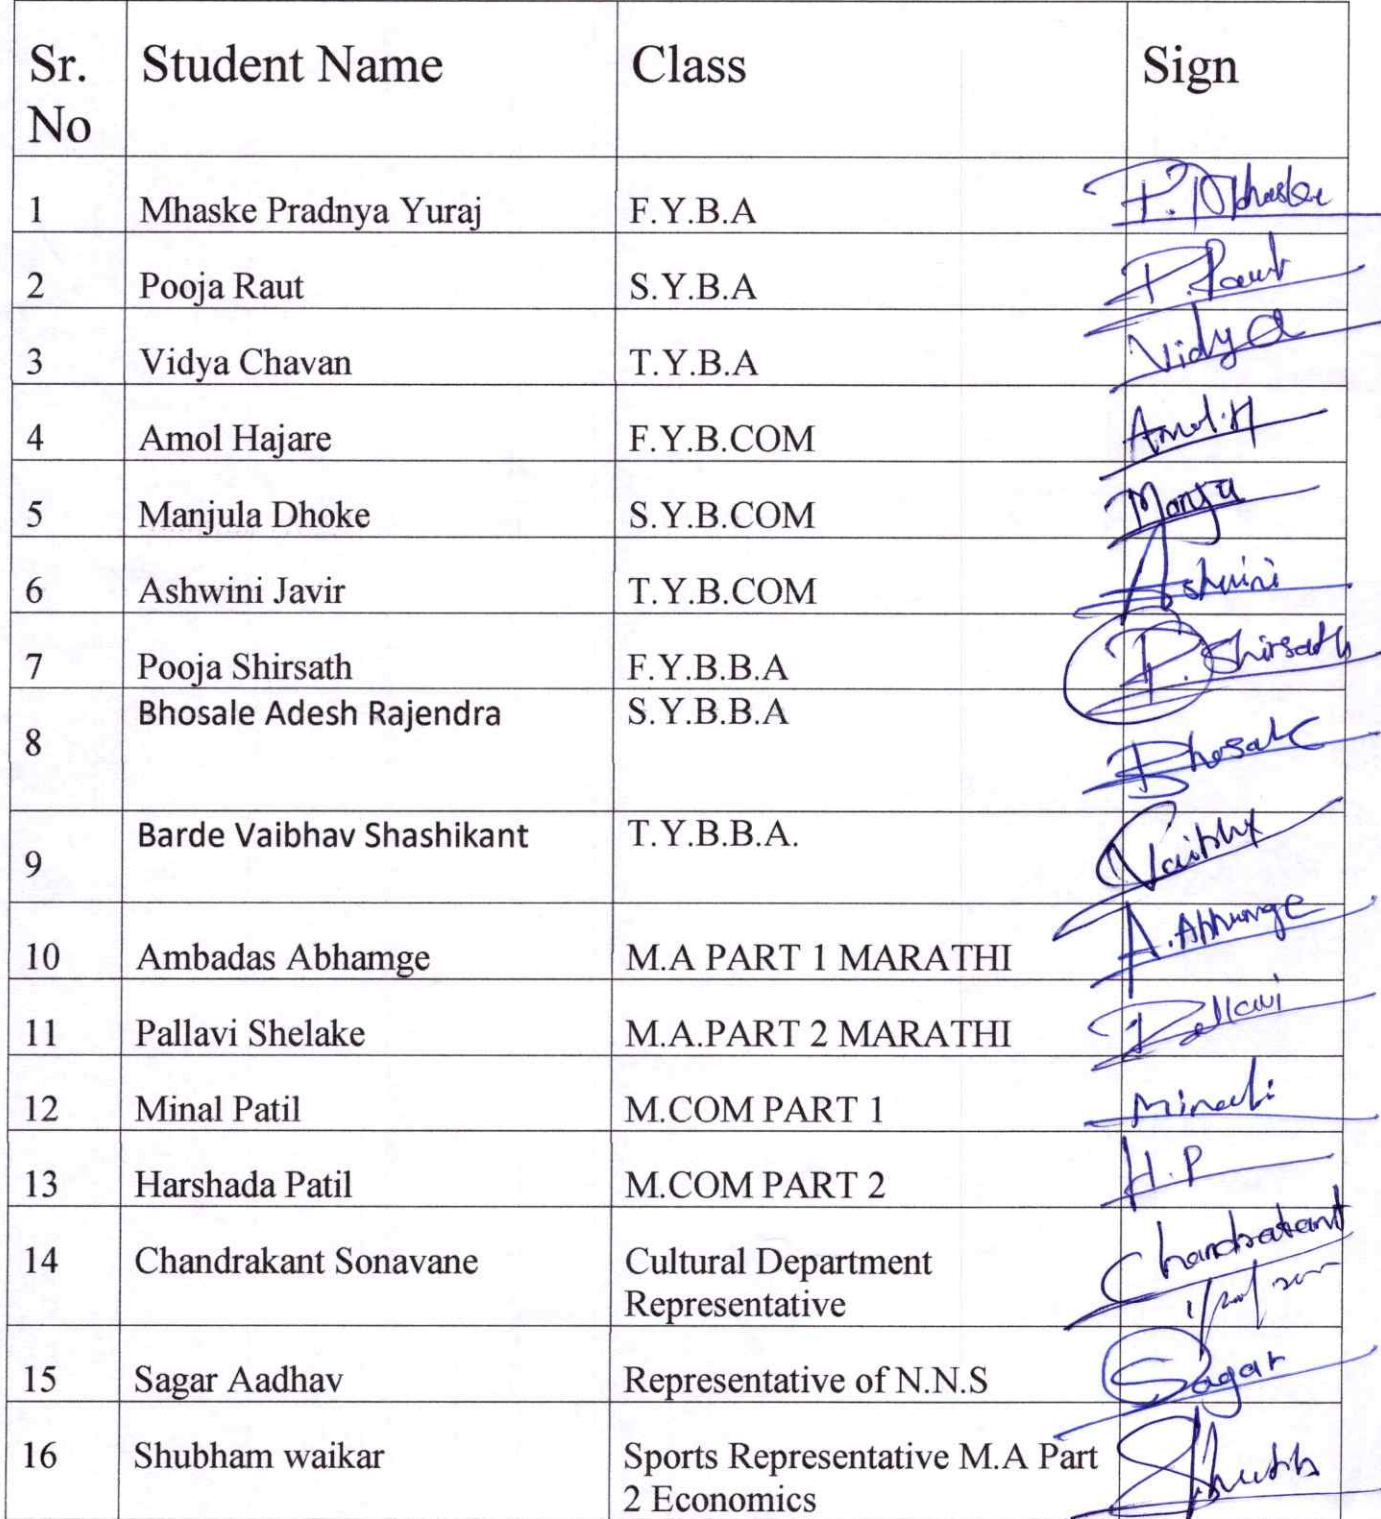 Sr. Student Name Class Sign
No
1 Mhaske Pradnya Yuraj F.Y.B.A P. Mhaske
2 Pooja Raut S.Y.B.A P. Raut
3 Vidya Chavan T.Y.B.A Vidya
4 Amol Hajare F.Y.B.COM Amol.H
5 Manjula Dhoke S.Y.B.COM
6 Ashwini Javir T.Y.B.COM Ashwini
7 Pooja Shirsath F.Y.B.B.A P. Shirsath
8 Bhosale Adesh Rajendra S.Y.B.B.A Bhosale
9 Barde Vaibhav Shashikant T.Y.B.B.A.
10 Ambadas Abhamge M.A PART 1 MARATHI
11 Pallavi Shelake M.A.PART 2 MARATHI Pallavi
12 Minal Patil M.COM PART 1
13 Harshada Patil M.COM PART 2 H.P
14 Chandrakant Sonavane Cultural Department Chandrakant
Representative
15 Sagar Aadhav Representative of N.N.S Sagar
16 Shubham waikar Sports Representative M.A Part
2 Economics